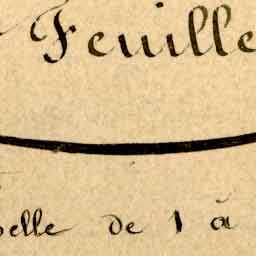 Feuille
elle de 1 à